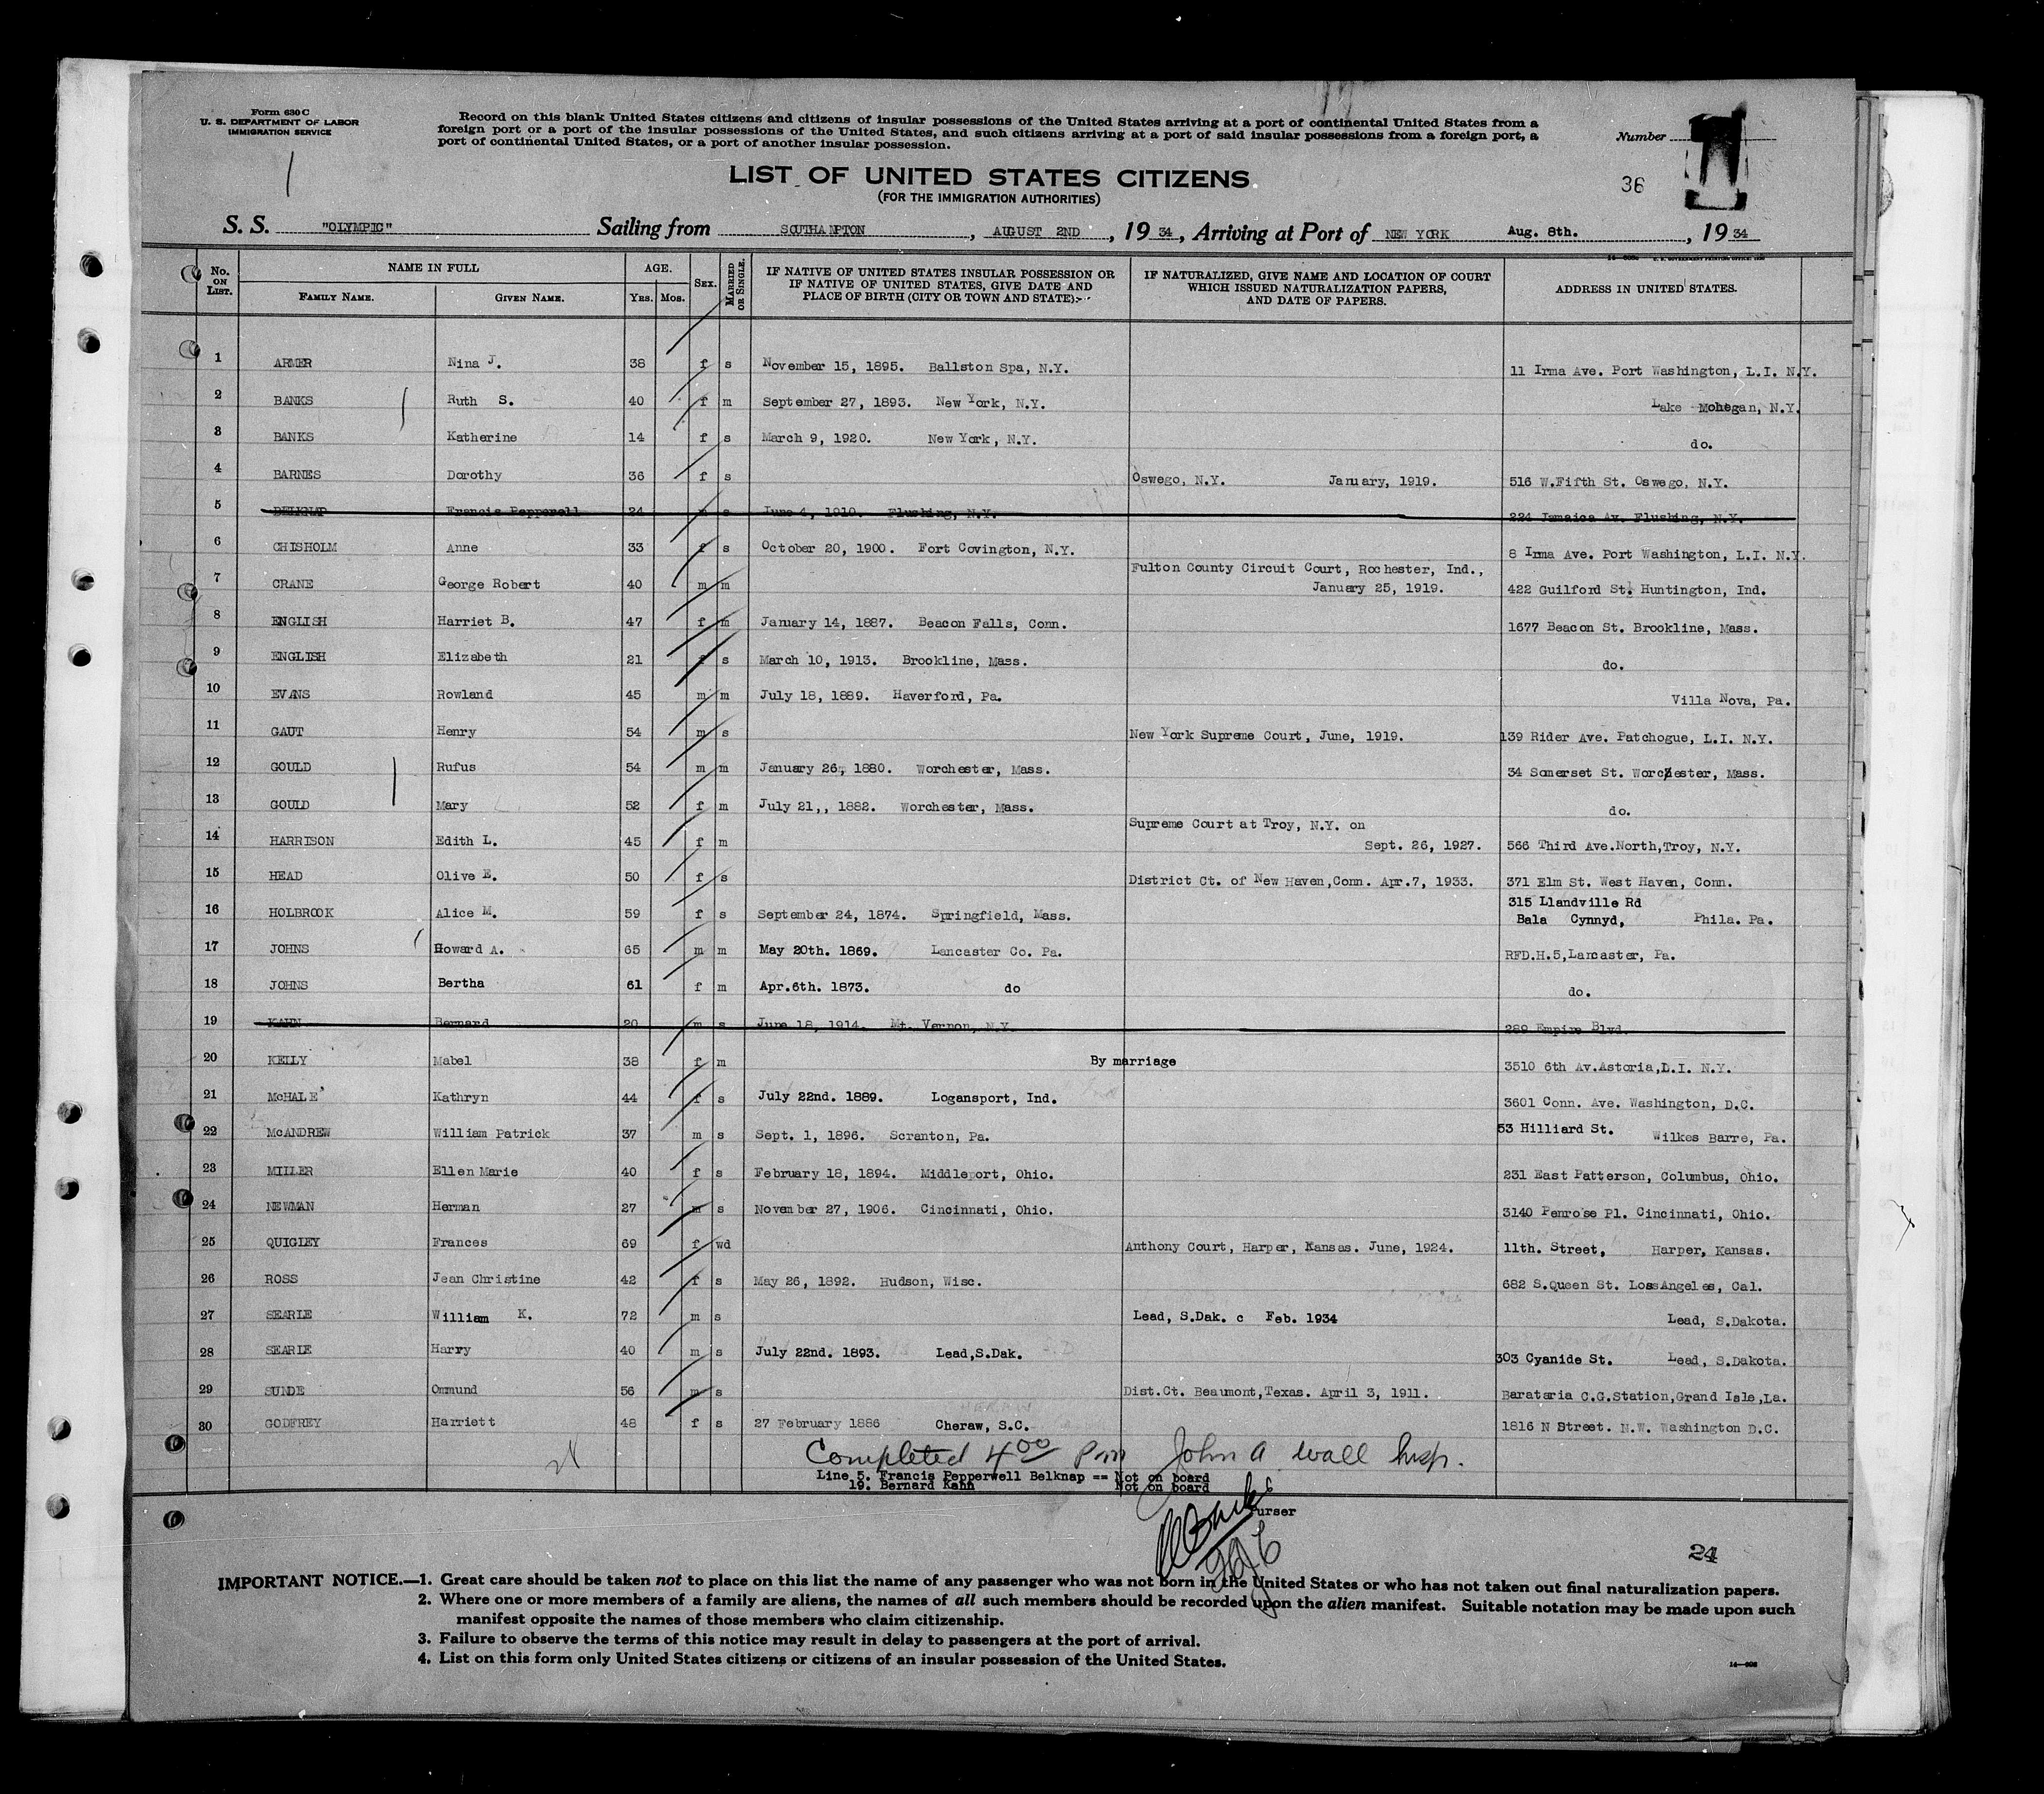 Form 630 C
U. S. DEPARTMENT OF LABOR
IMMIGRATION SERVICE
Record on this blank United States citizens and citizens of insular possessions of the United States arriving at a port of continental United States from a
foreign port or a port of the insular possessions of the United States, and such citizens arriving at a port of said insular possessions from a foreign port, a
port of continental United States, or a port of another insular possession.
Number
LIST OF UNITED STATES CITIZENS
(FOR THE IMMIGRATION AUTHORITIES)
36
S. S. "OLYMPIC" Sailing from SOUTHAMPTON, AUGUST 2ND, 1934, Arriving at Port of NEW YORK Aug. 8th., 1934
No. ON LIST. NAME IN FULL FAMILY NAME. GIVEN NAME. AGE. YRS. MOS. SEX. MARRIED OR SINGLE. IF NATIVE OF UNITED STATES INSULAR POSSESSION OR IF NATIVE OF UNITED STATES, GIVE DATE AND PLACE OF BIRTH (CITY OR TOWN AND STATE) IF NATURALIZED, GIVE NAME AND LOCATION OF COURT WHICH ISSUED NATURALIZATION PAPERS, AND DATE OF PAPERS. ADDRESS IN UNITED STATES.
1 ARMER Nina J. 38 f s November 15, 1895. Ballston Spa, N.Y. 11 Irma Ave. Port Washington, L.I. N.Y.
2 BANKS Ruth S. 40 f m September 27, 1893. New York, N.Y. Lake Mohegan, N.Y.
3 BANKS Katherine 14 f s March 9, 1920. New York, N.Y. do.
4 BARNES Dorothy 36 f s Oswego, N.Y. January, 1919. 516 W.Fifth St. Oswego, N.Y.
5 BELKNAP Francis Pepperell 24 m s June 4, 1910. Flushing, N.Y. 224 Jamaica Av. Flushing, N.Y.
6 CHISHOLM Anne 33 f s October 20, 1900. Fort Covington, N.Y. 8 Irma Ave. Port Washington, L.I. N.Y.
7 CRANE George Robert 40 m m Fulton County Circuit Court, Rochester, Ind., January 25, 1919. 422 Guilford St. Huntington, Ind.
8 ENGLISH Harriet B. 47 f m January 14, 1887. Beacon Falls, Conn. 1677 Beacon St. Brookline, Mass.
9 ENGLISH Elizabeth 21 f s March 10, 1913. Brookline, Mass. do.
10 EVANS Rowland 45 m m July 18, 1889. Haverford, Pa. Villa Nova, Pa.
11 GAUT Henry 54 m s New York Supreme Court, June, 1919. 139 Rider Ave. Patchogue, L.I. N.Y.
12 GOULD Rufus 54 m m January 26, 1880. Worchester, Mass. 34 Somerset St. Worchester, Mass.
13 GOULD Mary 52 f m July 21,, 1882. Worchester, Mass. do.
14 HARRISON Edith L. 45 f m Supreme Court at Troy, N.Y. on Sept. 26, 1927. 566 Third Ave.North,Troy, N.Y.
15 HEAD Olive E. 50 f s District Ct. of New Haven,Conn. Apr.7, 1933. 371 Elm St. West Haven, Conn.
16 HOLBROOK Alice M. 59 f s September 24, 1874. Springfield, Mass. 315 Llandville Rd Bala Cynnyd, Phila. Pa.
17 JOHNS Howard A. 65 m m May 20th. 1869. Lancaster Co. Pa. RFD.H.5,Lancaster, Pa.
18 JOHNS Bertha 61 f m Apr.6th. 1873. do do.
19 KAHN Bernard 20 m s June 18, 1914. Mt. Vernon, N.Y. 289 Empire Blvd.
20 KELLY Mabel 38 f m By marriage 3510 6th Av.Astoria,L.I. N.Y.
21 McHALE Kathryn 44 f s July 22nd. 1889. Logansport, Ind. 3601 Conn. Ave. Washington, D.C.
22 McANDREW William Patrick 37 m s Sept. 1, 1896. Scranton, Pa. 53 Hilliard St. Wilkes Barre, Pa.
23 MILLER Ellen Marie 40 f s February 18, 1894. Middleport, Ohio. 231 East Patterson, Columbus, Ohio.
24 NEWMAN Herman 27 m s November 27, 1906. Cincinnati, Ohio. 3140 Penrose Pl. Cincinnati, Ohio.
25 QUIGLEY Frances 69 f wd Anthony Court, Harper, Kansas. June, 1924. 11th. Street, Harper, Kansas.
26 ROSS Jean Christine 42 f s May 26, 1892. Hudson, Wisc. 682 S.Queen St. LosAngeles, Cal.
27 SEARLE William K. 72 m s Lead, S.Dak. c Feb. 1934 Lead, S.Dakota.
28 SEARLE Harry 40 m s July 22nd. 1893. Lead,S.Dak. 303 Cyanide St. Lead, S.Dakota.
29 SUNDE Ommund 56 m s Dist.Ct. Beaumont,Texas. April 3, 1911. Barataria C.G.Station,Grand Isle,La.
30 GODFREY Harriett 48 f s 27 February 1886 Cheraw, S.C. 1816 N Street. N.W. Washington D.C.
Completed 4 00 Pm John A Wall Insp.
Line 5. Francis Pepperwell Belknap == Not on board
19. Bernard Kahn Not on board
Purser
24
IMPORTANT NOTICE.—1. Great care should be taken not to place on this list the name of any passenger who was not born in the United States or who has not taken out final naturalization papers.
2. Where one or more members of a family are aliens, the names of all such members should be recorded upon the alien manifest. Suitable notation may be made upon such
manifest opposite the names of those members who claim citizenship.
3. Failure to observe the terms of this notice may result in delay to passengers at the port of arrival.
4. List on this form only United States citizens or citizens of an insular possession of the United States.